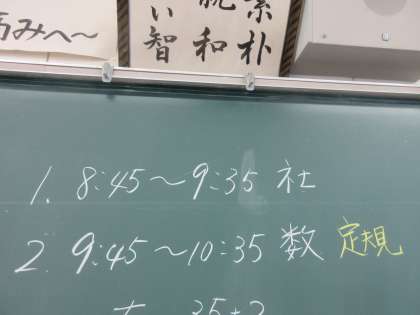 みへ〜
素朴
和
い智
1. 8:45〜9:35 社
2. 9:45〜10:35 数 定規